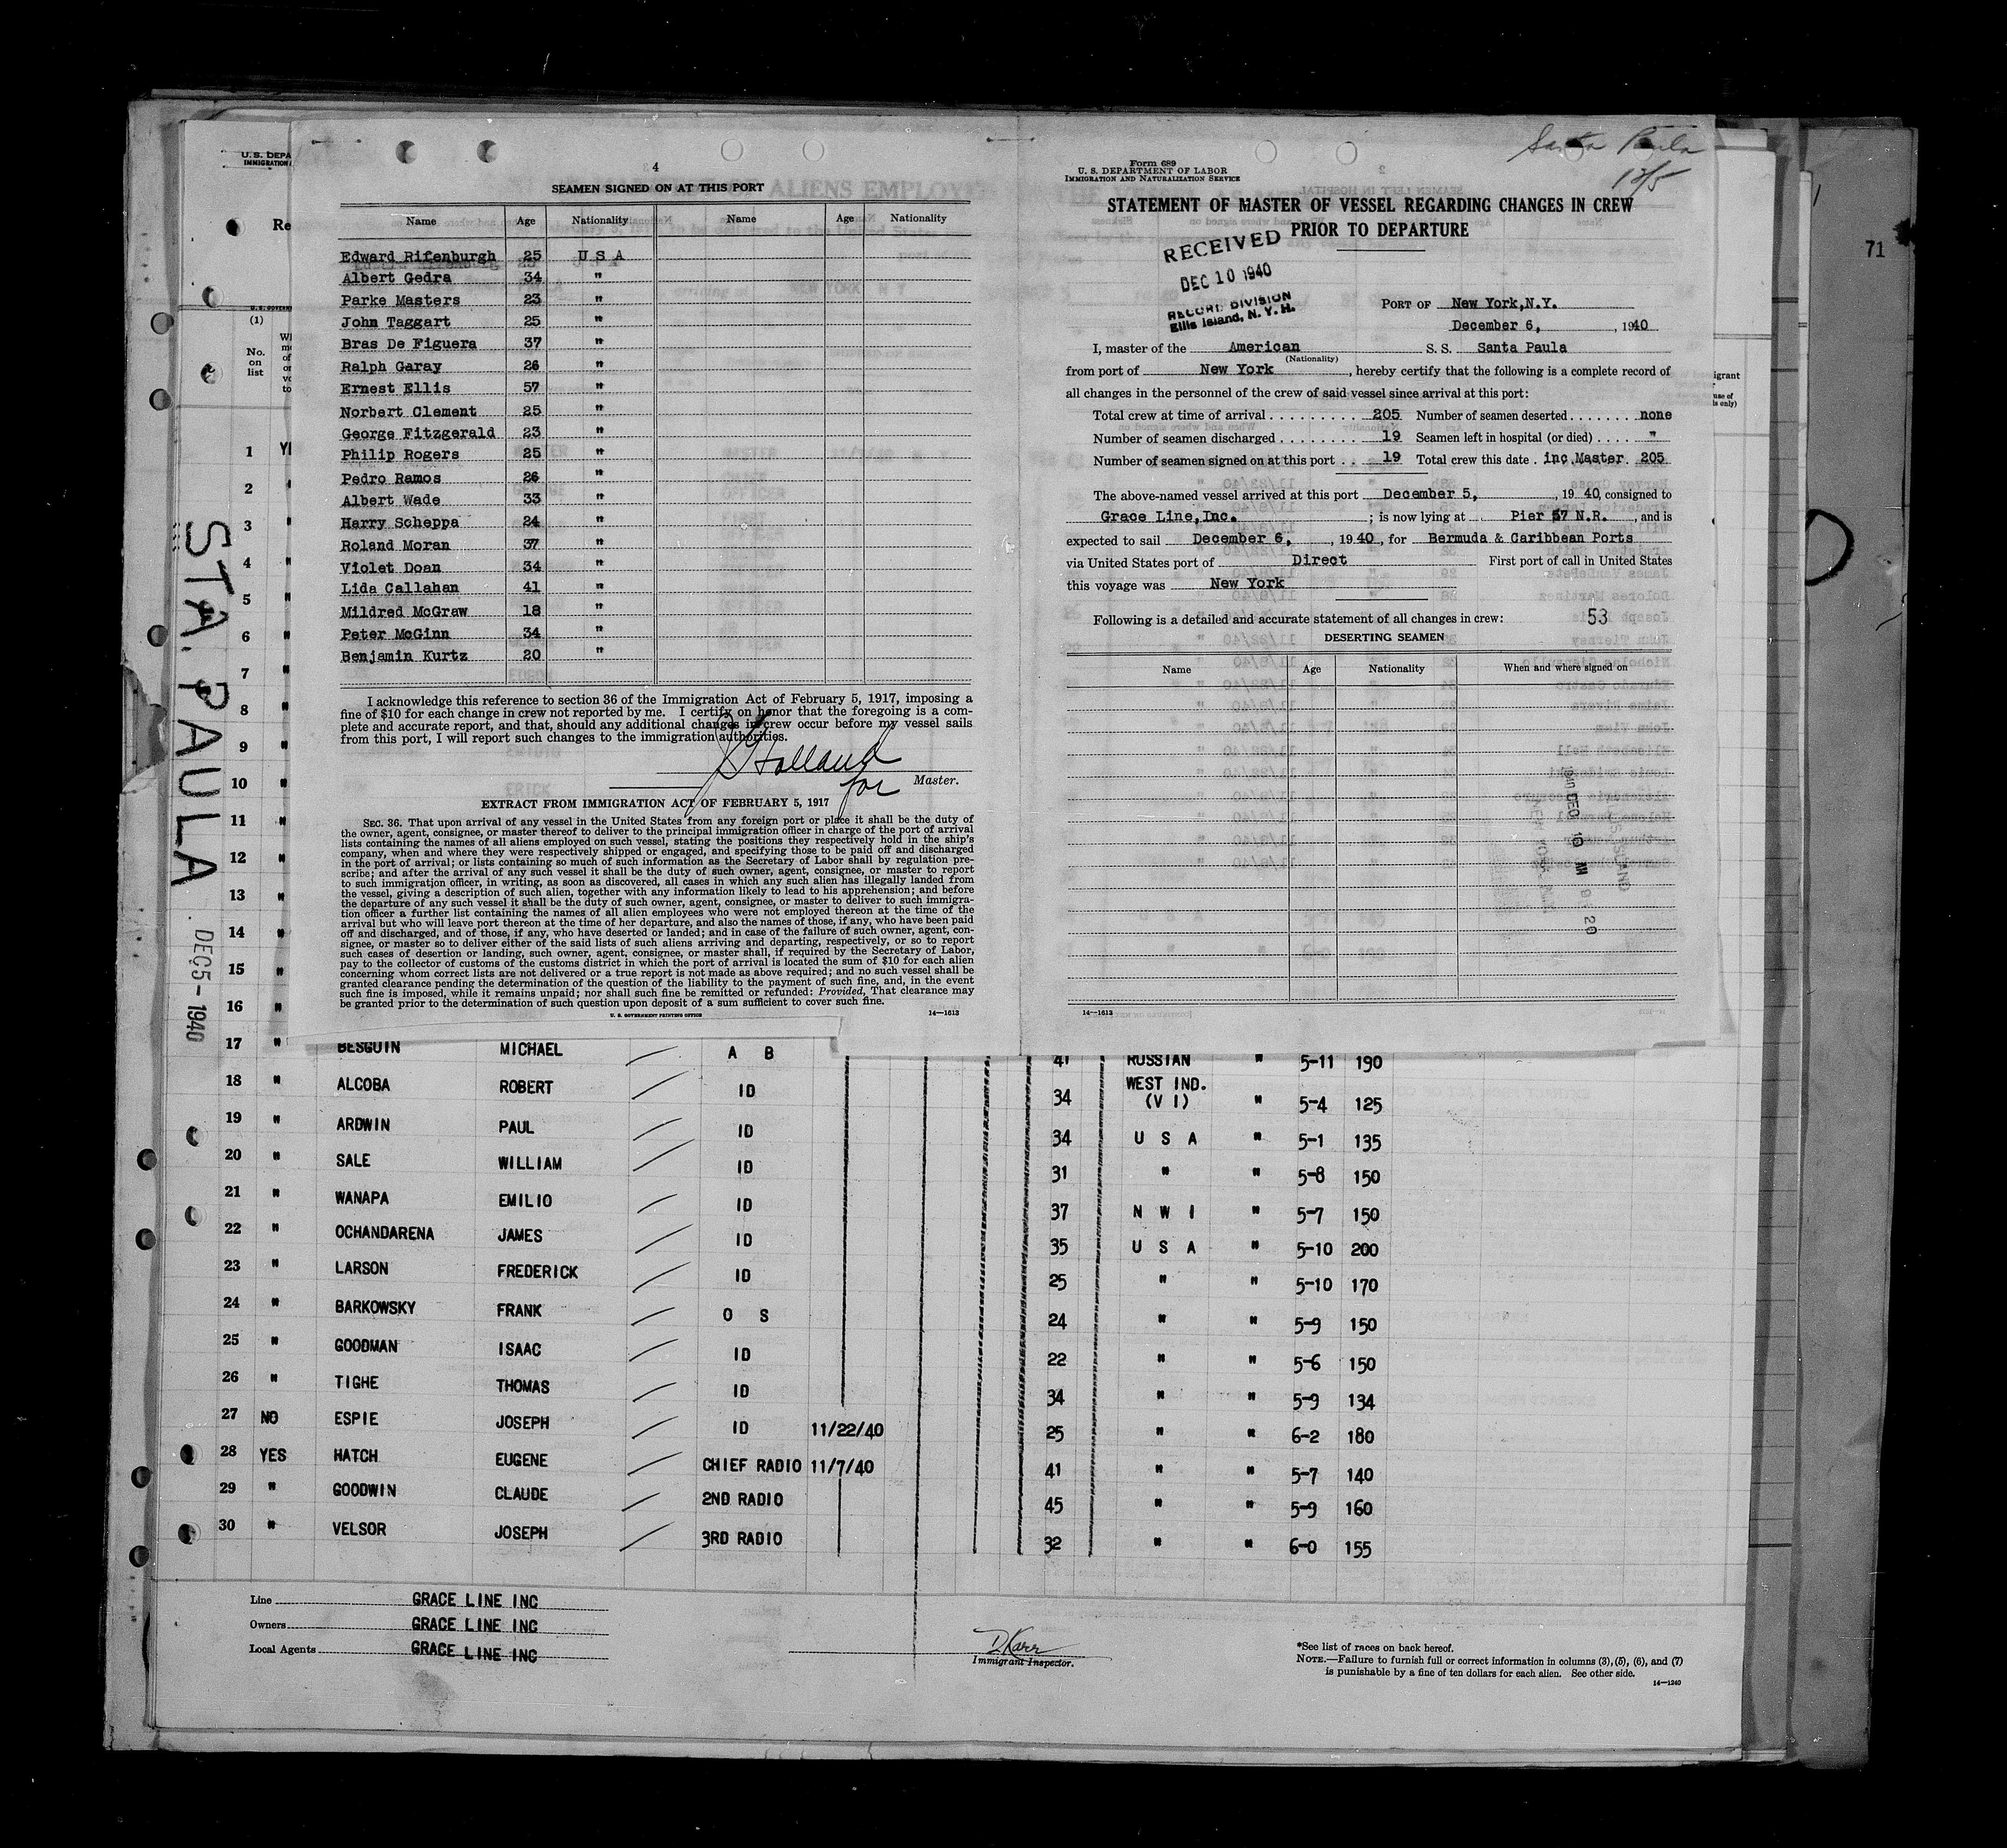 4
SEAMEN SIGNED ON AT THIS PORT
Name Age Nationality Name Age Nationality
Edward Rifenburgh 25 U S A
Albert Gedra 34 "
Parke Masters 23 "
John Taggart 25 "
Bras De Figuera 37 "
Ralph Garay 26 "
Ernest Ellis 57 "
Norbert Clement 25 "
George Fitzgerald 23 "
Philip Rogers 25 "
Pedro Ramos 26 "
Albert Wade 33 "
Harry Scheppa 24 "
Roland Moran 37 "
Violet Doan 34 "
Lida Callahan 41 "
Mildred McGraw 18 "
Peter McGinn 34 "
Benjamin Kurtz 20 "
I acknowledge this reference to section 36 of the Immigration Act of February 5, 1917, imposing a
fine of $10 for each change in crew not reported by me. I certify on honor that the foregoing is a com-
plete and accurate report, and that, should any additional changes in crew occur before my vessel sails
from this port, I will report such changes to the immigration authorities.
Holland
for Master.
EXTRACT FROM IMMIGRATION ACT OF FEBRUARY 5, 1917
SEC. 36. That upon arrival of any vessel in the United States from any foreign port or place it shall be the duty of
the owner, agent, consignee, or master thereof to deliver to the principal immigration officer in charge of the port of arrival
lists containing the names of all aliens employed on such vessel, stating the positions they respectively hold in the ship's
company, when and where they were respectively shipped or engaged, and specifying those to be paid off and discharged
in the port of arrival; or lists containing so much of such information as the Secretary of Labor shall by regulation pre-
scribe; and after the arrival of any such vessel it shall be the duty of such owner, agent, consignee, or master to report
to such immigration officer, in writing, as soon as discovered, all cases in which any such alien has illegally landed from
the vessel, giving a description of such alien, together with any information likely to lead to his apprehension; and before
the departure of any such vessel it shall be the duty of such owner, agent, consignee, or master to deliver to such immigra-
tion officer a further list containing the names of all alien employees who were not employed thereon at the time of the
arrival but who will leave port thereon at the time of her departure, and also the names of those, if any, who have been paid
off and discharged, and of those, if any, who have deserted or landed; and in case of the failure of such owner, agent, con-
signee, or master so to deliver either of the said lists of such aliens arriving and departing, respectively, or so to report
such cases of desertion or landing, such owner, agent, consignee, or master shall, if required by the Secretary of Labor,
pay to the collector of customs of the customs district in which the port of arrival is located the sum of $10 for each alien
concerning whom correct lists are not delivered or a true report is not made as above required; and no such vessel shall be
granted clearance pending the determination of the question of the liability to the payment of such fine, and, in the event
such fine is imposed, while it remains unpaid; nor shall such fine be remitted or refunded: Provided, That clearance may
be granted prior to the determination of such question upon deposit of a sum sufficient to cover such fine.
U. S. GOVERNMENT PRINTING OFFICE 14—1613
Santa Paula
12/5
Form 689
U. S. DEPARTMENT OF LABOR
IMMIGRATION AND NATURALIZATION SERVICE
STATEMENT OF MASTER OF VESSEL REGARDING CHANGES IN CREW
PRIOR TO DEPARTURE
RECEIVED
DEC 10 1940
RECORD DIVISION
Ellis Island, N. Y. H.
PORT OF New York, N.Y.
December 6, , 1940
I, master of the American S. S. Santa Paula
(Nationality)
from port of New York , hereby certify that the following is a complete record of
all changes in the personnel of the crew of said vessel since arrival at this port:
Total crew at time of arrival . . . . . . . . . . 205 Number of seamen deserted . . . . . . . none
Number of seamen discharged . . . . . . . . 19 Seamen left in hospital (or died) . . . . "
Number of seamen signed on at this port . . 19 Total crew this date . inc.Master. 205
The above-named vessel arrived at this port December 5, , 1940, consigned to
Grace Line, Inc. ; is now lying at Pier 57 N.R. , and is
expected to sail December 6, , 1940, for Bermuda & Caribbean Ports
via United States port of Direct First port of call in United States
this voyage was New York
Following is a detailed and accurate statement of all changes in crew: 53
DESERTING SEAMEN
Name Age Nationality When and where signed on
1940 DEC 10
14—1613
71
U. S. DEPA
IMMIGRATION
Re
(1)
No.
on
list
STA. PAULA
DEC 5-1940
1 YE
2 "
3 "
4 "
5 "
6 "
7 "
8 "
9 "
10 "
11 "
12 "
13 "
14 "
15 "
16 "
17 " BESGUIN MICHAEL A B 41 RUSSIAN " 5-11 190
18 " ALCOBA ROBERT ID 34 WEST IND. (V I) " 5-4 125
19 " ARDWIN PAUL ID 34 U S A " 5-1 135
20 " SALE WILLIAM ID 31 " " 5-8 150
21 " WANAPA EMILIO ID 37 N W I " 5-7 150
22 " OCHANDARENA JAMES ID 35 U S A " 5-10 200
23 " LARSON FREDERICK ID 25 " " 5-10 170
24 " BARKOWSKY FRANK O S 24 " " 5-9 150
25 " GOODMAN ISAAC ID 22 " " 5-6 150
26 " TIGHE THOMAS ID 34 " " 5-9 134
27 NO ESPIE JOSEPH ID 11/22/40 25 " " 6-2 180
28 YES HATCH EUGENE CHIEF RADIO 11/7/40 41 " " 5-7 140
29 " GOODWIN CLAUDE 2ND RADIO 45 " " 5-9 160
30 " VELSOR JOSEPH 3RD RADIO 32 " " 6-0 155
Line GRACE LINE INC
Owners GRACE LINE INC
Local Agents GRACE LINE INC
D Karr
Immigrant Inspector.
*See list of races on back hereof.
NOTE.—Failure to furnish full or correct information in columns (3), (5), (6), and (7)
is punishable by a fine of ten dollars for each alien. See other side.
14—1240